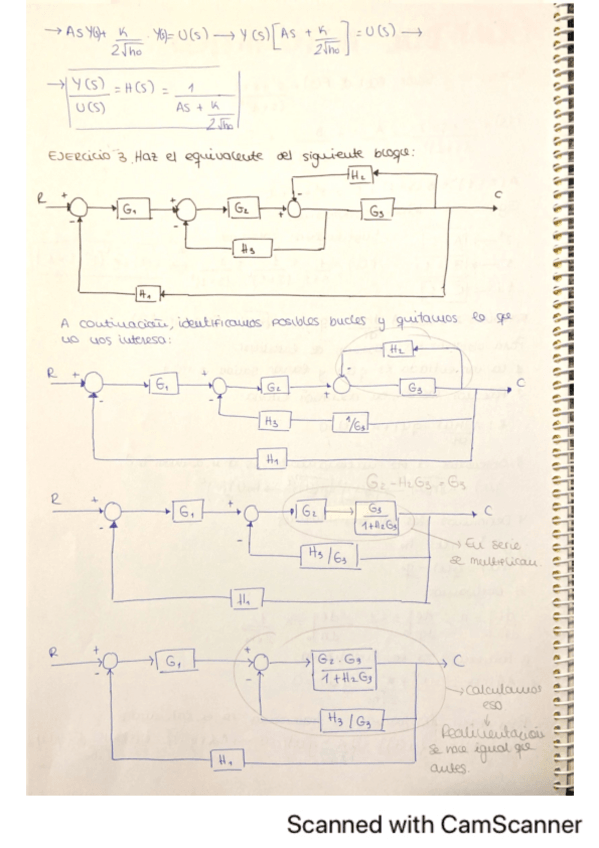 → AsY(s)+ K/2√h0 · Y(s) = U(s) → Y(s)[As + K/2√h0] = U(s) →
→ Y(s)/U(s) = H(s) = 1/(As + K/2√h0)
EJERCICIO 3. Haz el equivalente del siguiente bloque:
H2
R + G1 + G2 + - G3 C
- - H3
H1
A continuación, identificamos posibles bucles y quitamos lo que
no nos interesa:
H2
R + G1 G2 + - G3 C
- - H3 1/G3
H1
G2 - H2G3 · G3
R + G1 + G2 G3/(1+H2G3) C
- - H3/G3
→ En serie
se multiplican.
H1
R + G1 + G2·G3/(1+H2G3) C
- - H3/G3
→ Calculamos
eso
Realimentación
se hace igual que
antes.
H1
Scanned with CamScanner